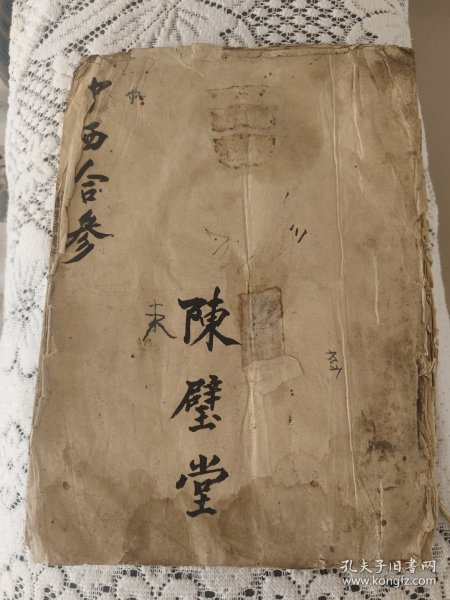 中西合参
陳璧堂
孔夫子旧书网
www.kongfz.com